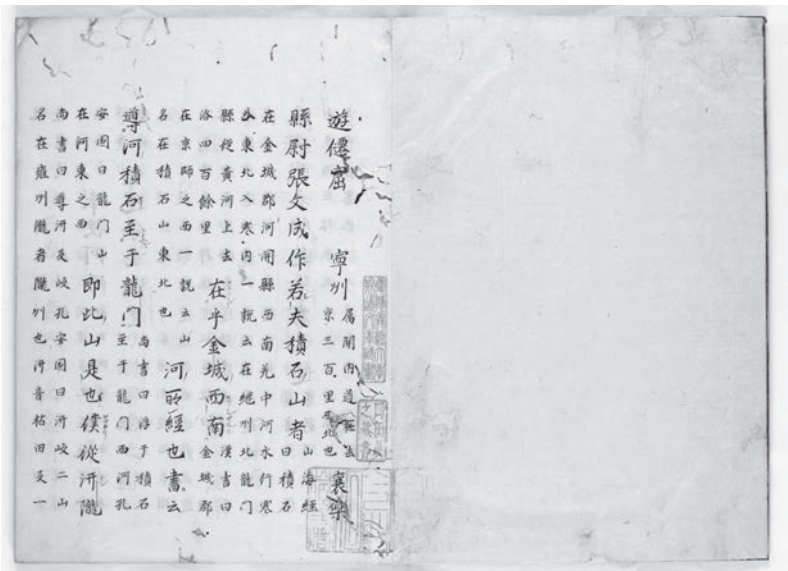 遊僊窟 寧州 属關内道去
京三百里西北也 襄樂
縣尉張文成作若夫積石山者 山海經
曰積石
在金城郡河開縣西南羌中河水行寒
外東北入寒内一說云在絶州北龍門
縣從黄河上去
洛四百餘里 在乎金城西南 漢書曰
金城郡
在京師之西一說云山
名在積石山東北也 河所經也書云
導河積石至于龍門 尚書曰浮于積石
至于龍門西河孔
安國曰龍门山
在河東之西 即此山是也僕從汧隴
尚書曰導汧及岐孔安國曰汧岐二山
名在雍州隴者隴州也汧音祐田反一